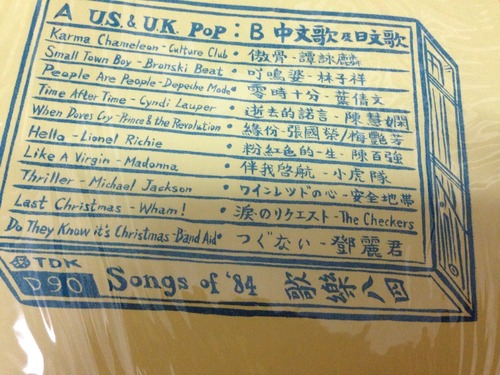 A U.S. & U.K. POP : B 中文歌及日文歌
Karma Chameleon - Culture Club • 傲骨 - 譚詠麟
Small Town Boy - Bronski Beat • 叮鳴婆 - 林子祥
People Are People - Depeche Mode • 零時十分 - 葉倩文
Time After Time - Cyndi Lauper • 逝去的諾言 - 陳慧嫻
When Doves Cry - Prince & the Revolution • 緣份 - 張國榮/梅艷芳
Hello - Lionel Richie • 粉紅色的一生 - 陳百強
Like A Virgin - Madonna • 伴我啓航 - 小虎隊
Thriller - Michael Jackson • ワインレッドの心 - 安全地帯
Last Christmas - Wham! • 涙のリクエスト - The Checkers
Do They Know it's Christmas - Band Aid • つぐない - 鄧麗君
TDK
D90 Songs of '84 歌樂八四